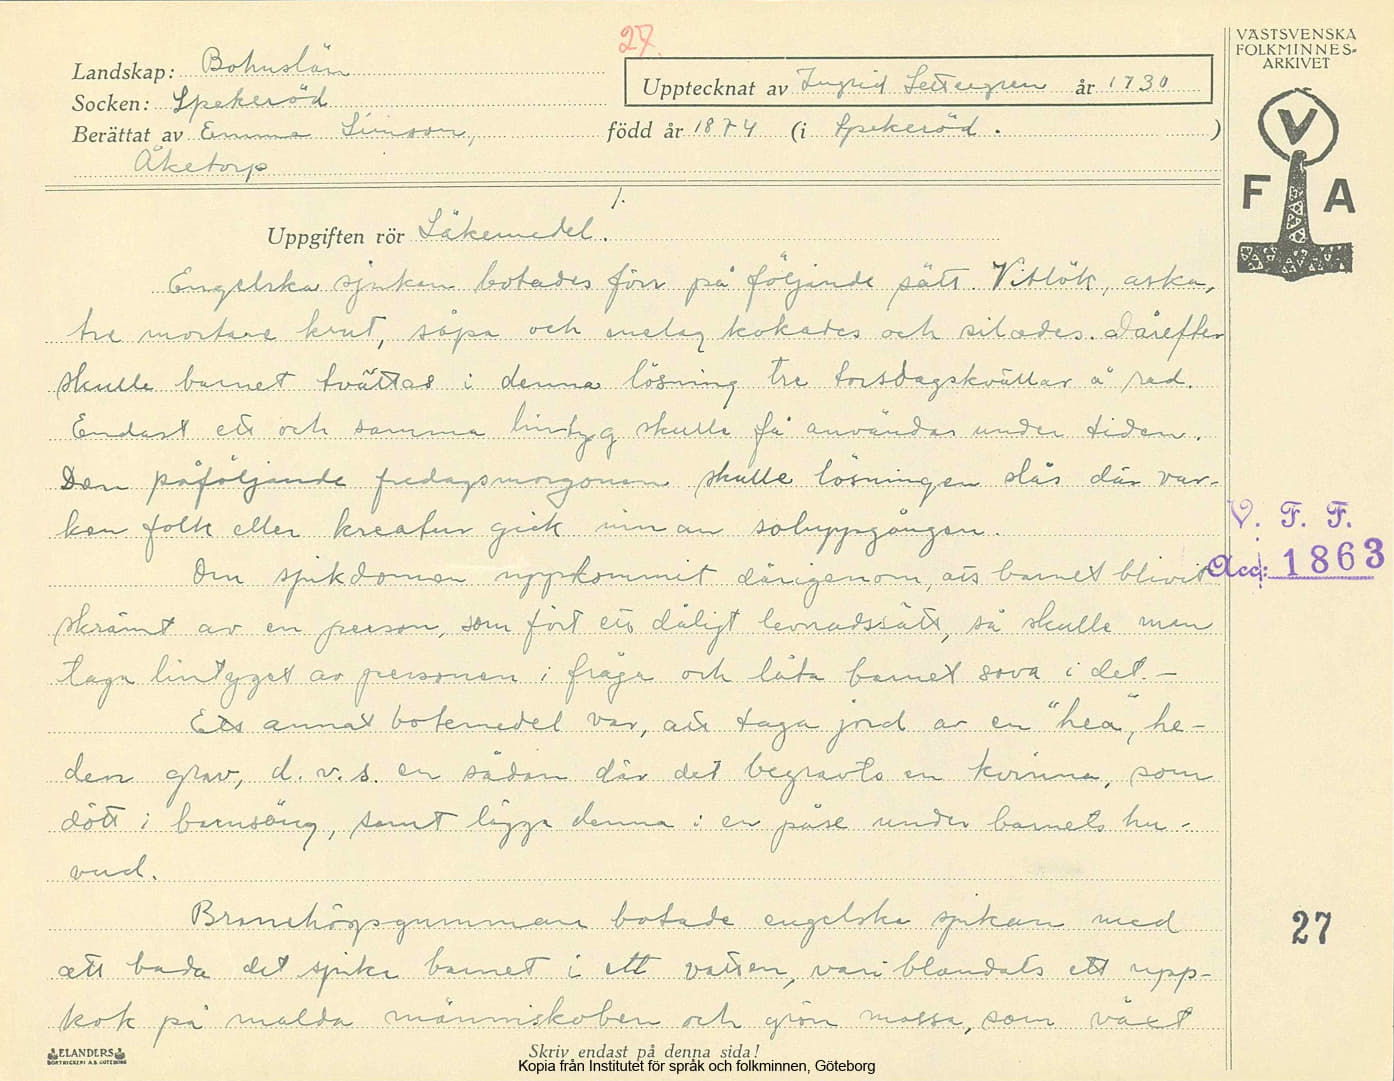 27.
VÄSTSVENSKA
FOLKMINNES-
ARKIVET
Landskap: Bohuslän
Upptecknat av Ingrid Settergren år 1930
Socken: Spekeröd
Berättat av Emma Simson, född år 1874 (i Spekeröd. )
Åketorp
V
F A
1.
Uppgiften rör Läkemedel.
Engelska sjukan botades förr på följande sätt. Vitlök, aska,
tre mortare krut, såpa och enelag kokades och silades. Därefter
skulle barnet tvättas i denna lösning tre torsdagskvällar å rad.
Endast ett och samma lintyg skulle få användas under tiden.
Den påföljande fredagsmorgonen skulle lösningen slås där var-
ken folk eller kreatur gick innan soluppgången.
V. F. F.
Acc: 1863
Om sjukdomen uppkommit därigenom, att barnet blivit
skrämt av en person, som fört ett dåligt levnadssätt, så skulle man
taga lintyget av personen i fråga och låta barnet sova i det. –
Ett annat botemedel var, att taga jord av en "hea", he-
den grav, d.v.s. en sådan där det begravts en kvinna, som
dött i barnsäng, samt lägga denna i en påse under barnets hu-
vud.
Branehögsgumman botade engelska sjukan med
att bada det sjuka barnet i ett vatten, vari blandats ett upp-
kok på malda människoben och grön mossa, som växt
27
ELANDERS
BOKTRYCKERI A.B. GÖTEBORG
Skriv endast på denna sida!
Kopia från Institutet för språk och folkminnen, Göteborg